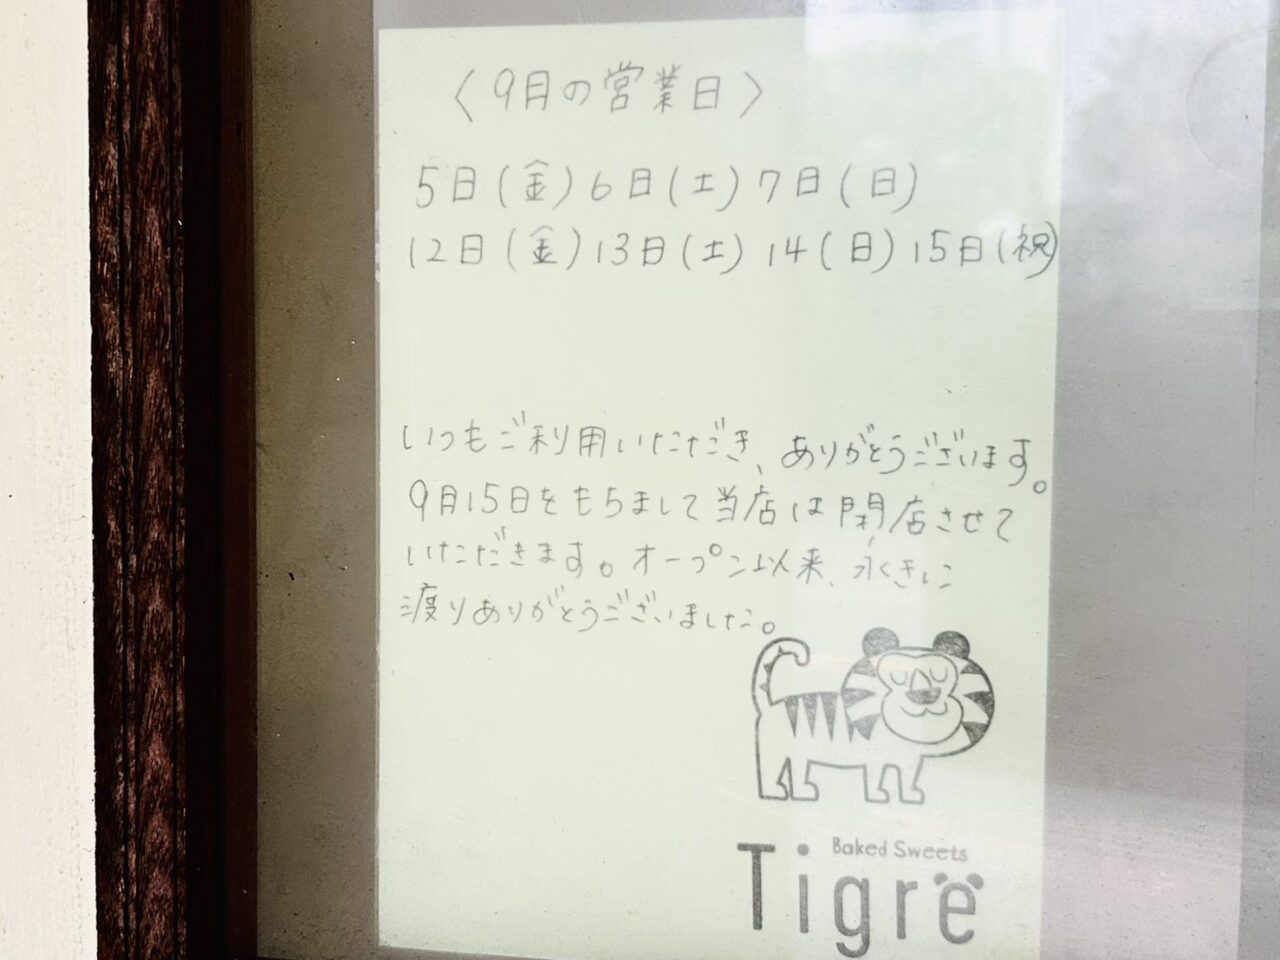 〈9月の営業日〉
5日(金)6日(土)7日(日)
12日(金)13日(土)14(日)15日(祝)
いつもご利用いただき、ありがとうございます。
9月15日をもちまして当店は閉店させて
いただきます。オープン以来、永きに
渡りありがとうございました。
Baked Sweets
Tigre